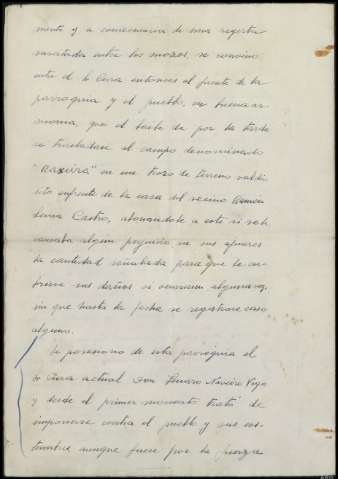 mente y a consecuencia de una reyerta
suscitada entre los mozos, se convino
entre el Sr Cura entonces al frente de la
parroquia y el pueblo, en buena ar-
monia, que el baile de por la tarde
se trasladase al campo denominado
"Raxeira" en un trozo de terreno valdi
sito enfrente de la casa del vecino Ramon
Castro, abonandole a este si se le
causaba algun pequeño en sus
la cantidad señalada para que le cu-
briese sus daños si ocurriesen algunos,
sin que hasta la fecha se registrase caso
alguno.
Se posesiono de esta parroquia el
Sr Cura actual Don Novoa
y desde el primer momento trató de
imponerse contra el pueblo y sus cos-
tumbres aunque fuese por la fuerza